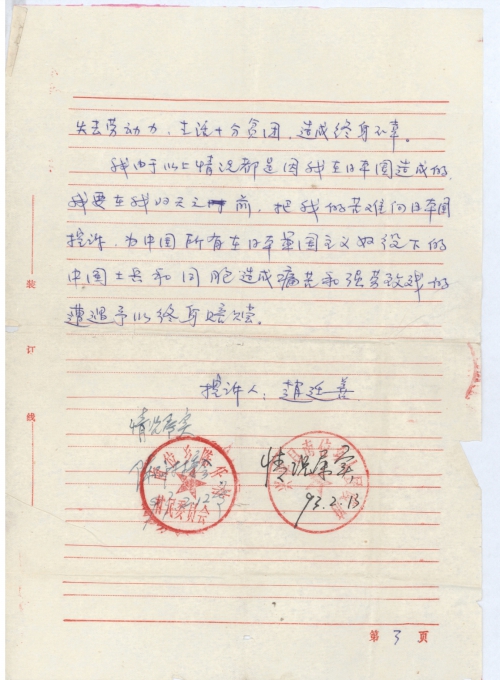 失去劳动力，生活十分贫困，造成终身不幸。
我由于以上情况都是因我在日本国造成的，
我要在我归天之前，把我的苦难向日本国
控诉，为中国所有在日本军国主义奴役下的
中国士兵和同胞造成痛苦和强劳致残的
遭遇予以终身赔偿。
控诉人：赵廷善
情况属实
情况属实
93.2.13
村民委员会
装
订
线
第 3 页